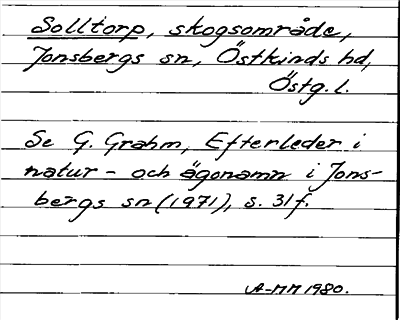 Solltorp, skogsområde,
Jonsbergs sn, Östkinds hd,
Östg. l.
Se G. Grahm, Efterleder i
natur- och ägonamn i Jons-
bergs sn (1971), s. 31f.
A-MM 1980.